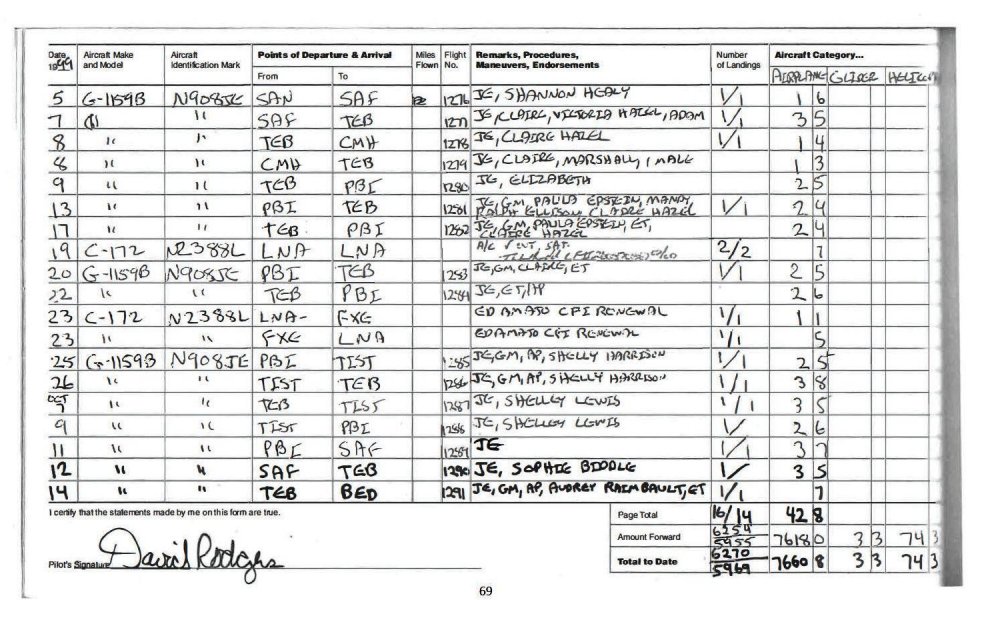 Date 1999 Aircraft Make and Model Aircraft Identification Mark Points of Departure & Arrival Miles Flown Flight No. Remarks, Procedures, Maneuvers, Endorsements Number of Landings Aircraft Category...
From To AIRPLANE GLIDER HELICO
5 G-1159B N908JE SAN SAF 1276 JE, SHANNON HEALY 1/1 1 6
7 " SAF TEB 1277 JE, CLAIRE, VICTORIA HAZEL, ADAM 1/1 3 5
8 " " TEB CMH 1278 JE, CLAIRE HAZEL 1/1 1 4
8 " " CMH TEB 1279 JE, CLAIRE, MARSHALL, 1 MALE 1 3
9 " " TEB PBI 1280 JE, ELIZABETH 2 5
13 " " PBI TEB 1281 JE, GM, PAULA EPSTEIN, MANDY, RALPH ELLISON CLAIRE HAZEL 1/1 2 4
17 " " TEB PBI 1282 JE, GM, PAULA EPSTEIN, ET, CLAIRE HAZEL 2 4
19 C-172 N2388L LNA LNA A/C SAT. 2/2 7
20 G-1159B N908JE PBI TEB 1283 JE, GM, CLAIRE, ET 1/1 2 5
22 " " TEB PBI 1284 JE, ET, 2 6
23 C-172 N2388L LNA- FXE ED AMATO CFI RENEWAL 1/1 1 1
23 " " FXE LNA ED AMATO CFI RENEWAL 1/1 5
25 G-1159B N908JE PBI TIST 1285 JE, GM, AP, SHELLY HARRISON 1/1 2 5
26 " " TIST TEB 1286 JE, GM, AP, SHELLY HARRISON 1/1 3 8
OCT 7 " " TEB TIST 1287 JE, SHELLEY LEWIS 1/1 3 5
9 " " TIST PBI 1288 JE, SHELLEY LEWIS 1/ 2 6
11 " " PBI SAF 1289 JE 1/1 3 7
12 " " SAF TEB 1290 JE, SOPHIE BIDDLE 1/ 3 5
14 " " TEB BED 1291 JE, GM, AP, AUDREY RAIMBAULT, ET 1/1 7
I certify that the statements made by me on this form are true. Page Total 16/14 42 8
Amount Forward 6254 5955 7618 0 3 3 74 3
Pilot's Signature David Rodgers Total to Date 6270 5969 7660 8 3 3 74 3
69